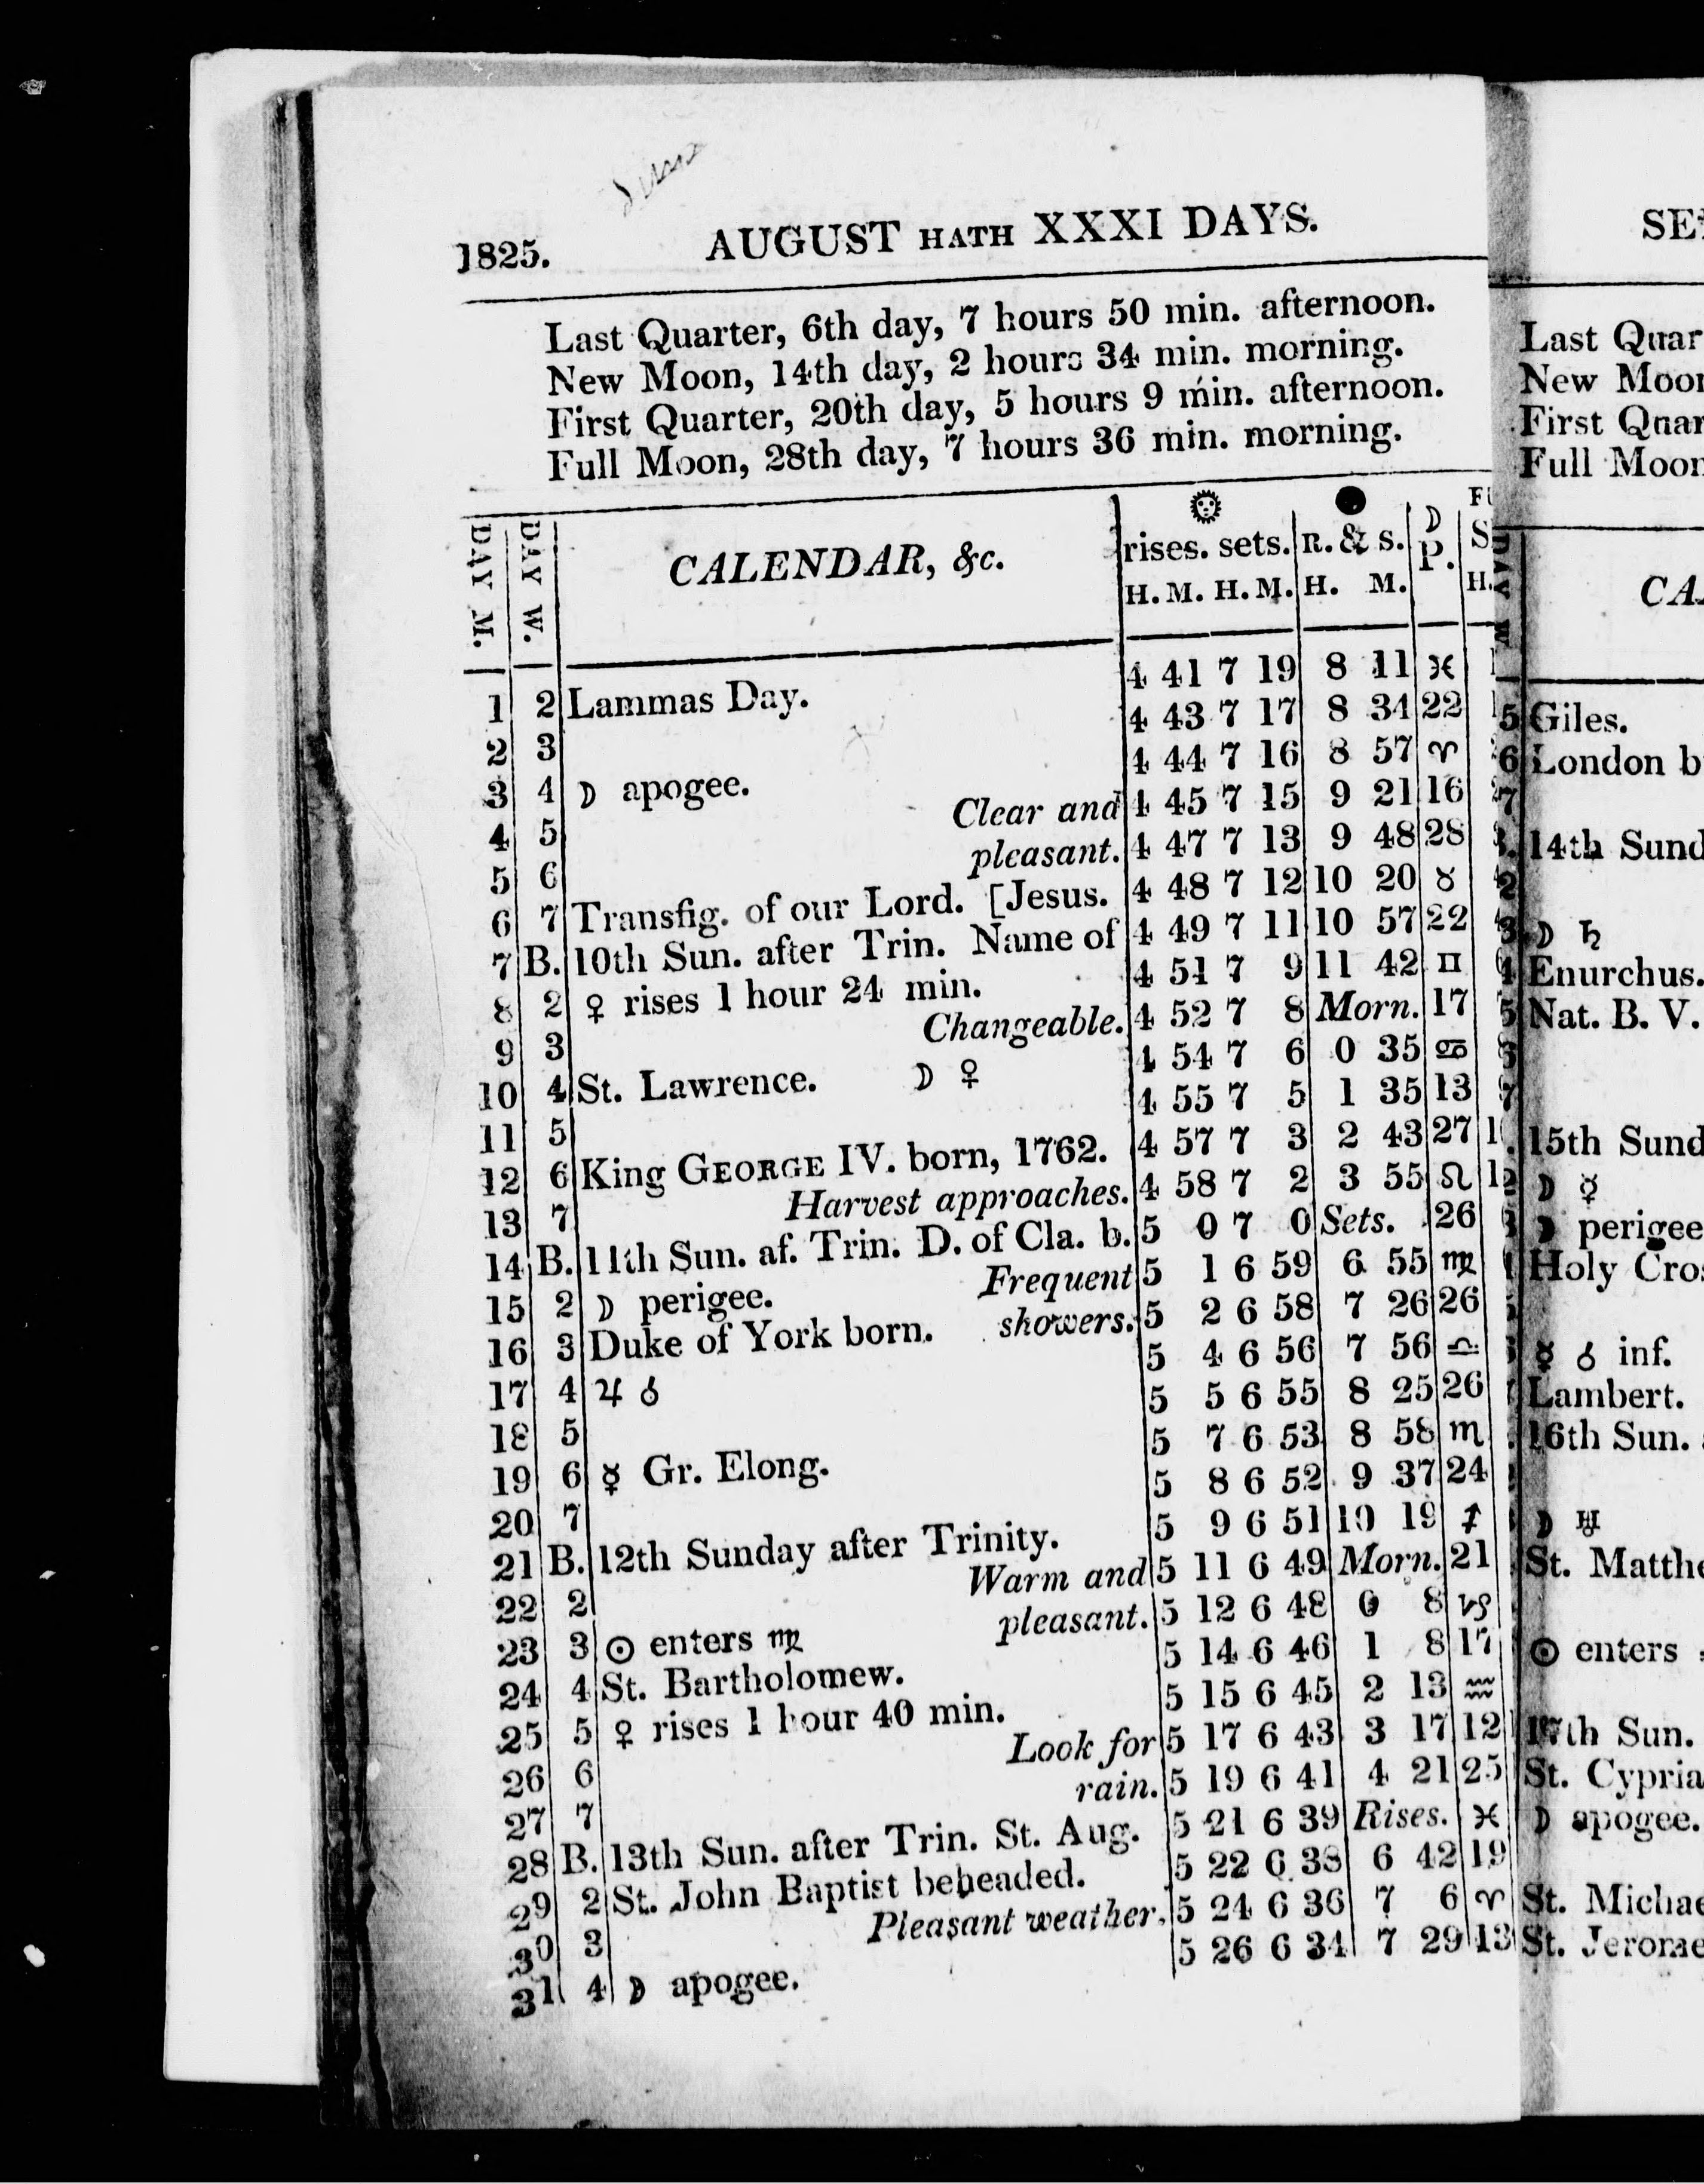 1825. AUGUST HATH XXXI DAYS.
Last Quarter, 6th day, 7 hours 50 min. afternoon.
New Moon, 14th day, 2 hours 34 min. morning.
First Quarter, 20th day, 5 hours 9 min. afternoon.
Full Moon, 28th day, 7 hours 36 min. morning.
DAY M. DAY W. CALENDAR, &c. rises. sets. R. & S. ☽ P.
H. M. H. M. H. M. H.
1 2 Lammas Day. 4 41 7 19 8 11 ♓
2 3 4 43 7 17 8 34 22
3 4 ☽ apogee. 4 44 7 16 8 57 ♈
4 5 Clear and 4 45 7 15 9 21 16
5 6 pleasant. 4 47 7 13 9 48 28
6 7 Transfig. of our Lord. [Jesus. 4 48 7 12 10 20 ♉
7 B. 10th Sun. after Trin. Name of 4 49 7 11 10 57 22
8 2 ♀ rises 1 hour 24 min. 4 51 7 9 11 42 ♊
9 3 Changeable. 4 52 7 8 Morn. 17
10 4 St. Lawrence. ☽ ♀ 4 54 7 6 0 35 ♋
11 5 4 55 7 5 1 35 13
12 6 King GEORGE IV. born, 1762. 4 57 7 3 2 43 27
13 7 Harvest approaches. 4 58 7 2 3 55 ♌
14 B. 11th Sun. af. Trin. D. of Cla. b. 5 0 7 0 Sets. 26
15 2 ☽ perigee. Frequent 5 1 6 59 6 55 ♍
16 3 Duke of York born. showers. 5 2 6 58 7 26 26
17 4 ♃ ☌ 5 4 6 56 7 56 ♎
18 5 5 5 6 55 8 25 26
19 6 ☿ Gr. Elong. 5 7 6 53 8 58 ♏
20 7 5 8 6 52 9 37 24
21 B. 12th Sunday after Trinity. 5 9 6 51 10 19 ♐
22 2 Warm and 5 11 6 49 Morn. 21
23 3 ☉ enters ♍ pleasant. 5 12 6 48 0 8 ♑
24 4 St. Bartholomew. 5 14 6 46 1 8 17
25 5 ♀ rises 1 hour 40 min. 5 15 6 45 2 13 ♒
26 6 Look for 5 17 6 43 3 17 12
27 7 rain. 5 19 6 41 4 21 25
28 B. 13th Sun. after Trin. St. Aug. 5 21 6 39 Rises. ♓
29 2 St. John Baptist beheaded. 5 22 6 38 6 42 19
30 3 Pleasant weather. 5 24 6 36 7 6 ♈
31 4 ☽ apogee. 5 26 6 34 7 29 13
Last Quar
New Moon
First Quar
Full Moon
DAY W
5 Giles.
6 London b
7
14th Sund
2
3 ☽ ♄
4 Enurchus.
5 Nat. B. V.
6
7
15th Sund
☽ ☿
☽ perigee
Holy Cros
☿ ☌ inf.
Lambert.
16th Sun.
☽ ♅
St. Matthe
☉ enters
17th Sun.
St. Cypria
☽ apogee.
St. Michae
St. Jerome